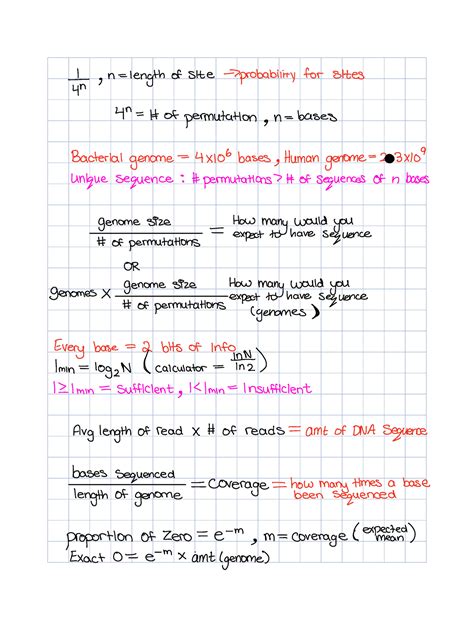 1/4ⁿ , n = length of site → probability for sites
4ⁿ = # of permutation , n = bases
Bacterial genome = 4x10⁶ bases, Human genome = 3x10⁹
Unique sequence : # permutations > # of sequences of n bases
genome size / # of permutations = How many would you expect to have sequence
OR
genomes x genome size / # of permutations = How many would you expect to have sequence (genomes)
Every base = 2 bits of info
Imin = log₂N ( calculator = lnN / ln2 )
I ≥ Imin = sufficient , I < Imin = insufficient
Avg length of read x # of reads = amt of DNA sequence
bases sequenced / length of genome = coverage = how many times a base been sequenced
proportion of zero = e⁻ᵐ , m = coverage ( expected mean )
Exact 0 = e⁻ᵐ x amt (genome)